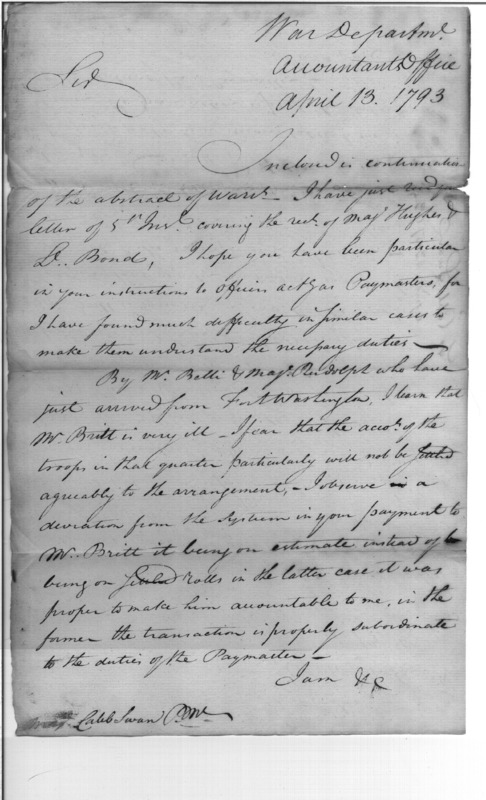 War Departmt.
Accountants Office
April 13. 1793
Sir
Inclosed is continuation
of the abstract of Warts. I have just recd your
letter of 5th Inst. covering the rect. of Majr Hughes &
Lt. Bond, I hope you have been particular
in your instructions to officers actg as Paymasters, for
I have found much difficulty in similar cases to
make them understand the necessary duties -
By Mr. Belli & Majr. Rudolph who have
just arrived from Fort Washington, I learn that
Mr Britt is very ill - I fear that the accots. of the
troops in that quarter particularly will not be settled
agreeably to the arrangement, - I observe a
deviation from the System in your payment to
Mr. Britt it being on estimate instead of
being on settled rolls in the latter case it was
proper to make him accountable to me, in the
former the transaction is properly subordinate
to the duties of the Paymaster -
I am &c
Caleb Swan P.Mr.